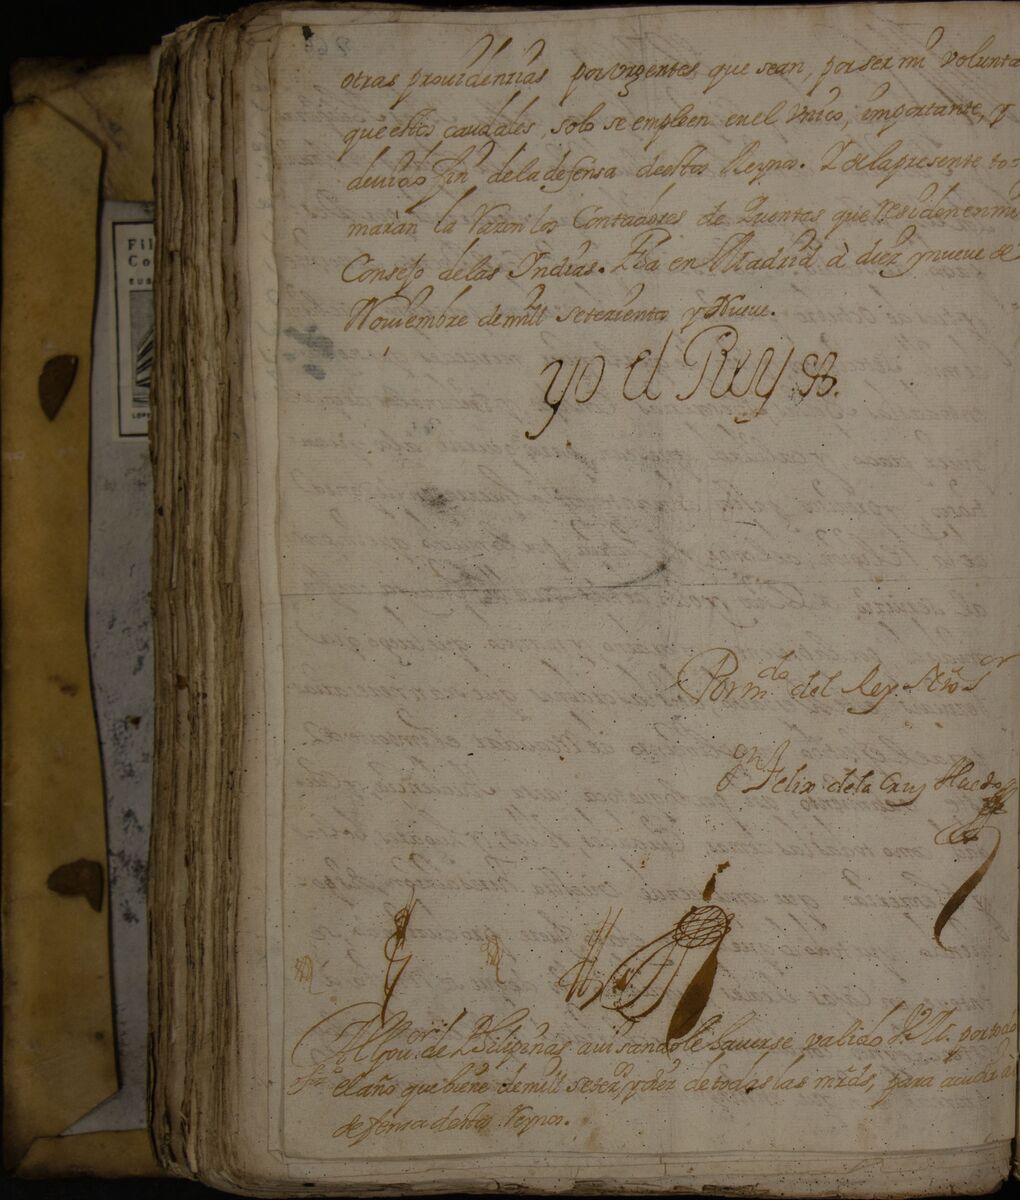 otras providencias por urgentes que sean, por ser mi volunta
que estos caudales, solo se empleen en el vnico, importante, y
devido fin de la defensa de estos Reynos. Y de la presente to=
marán la razon los Contadores de Quentas que residen en mi
Consejo de las Indias. Fha en Madrid à diez y nueve de
Noviembre de mill setecientos y Nueve.
yo el Rey
Por mdo. del Rey Nro Sor
Dn Felix de la Cruz Haedo
Al Govor. de Philipinas auisandole hauerse valido S. M. por todo
el año que biene de mill setezs. y diez de todas las mrds, para acudir à
defensa destos Reynos.
Fil
Co